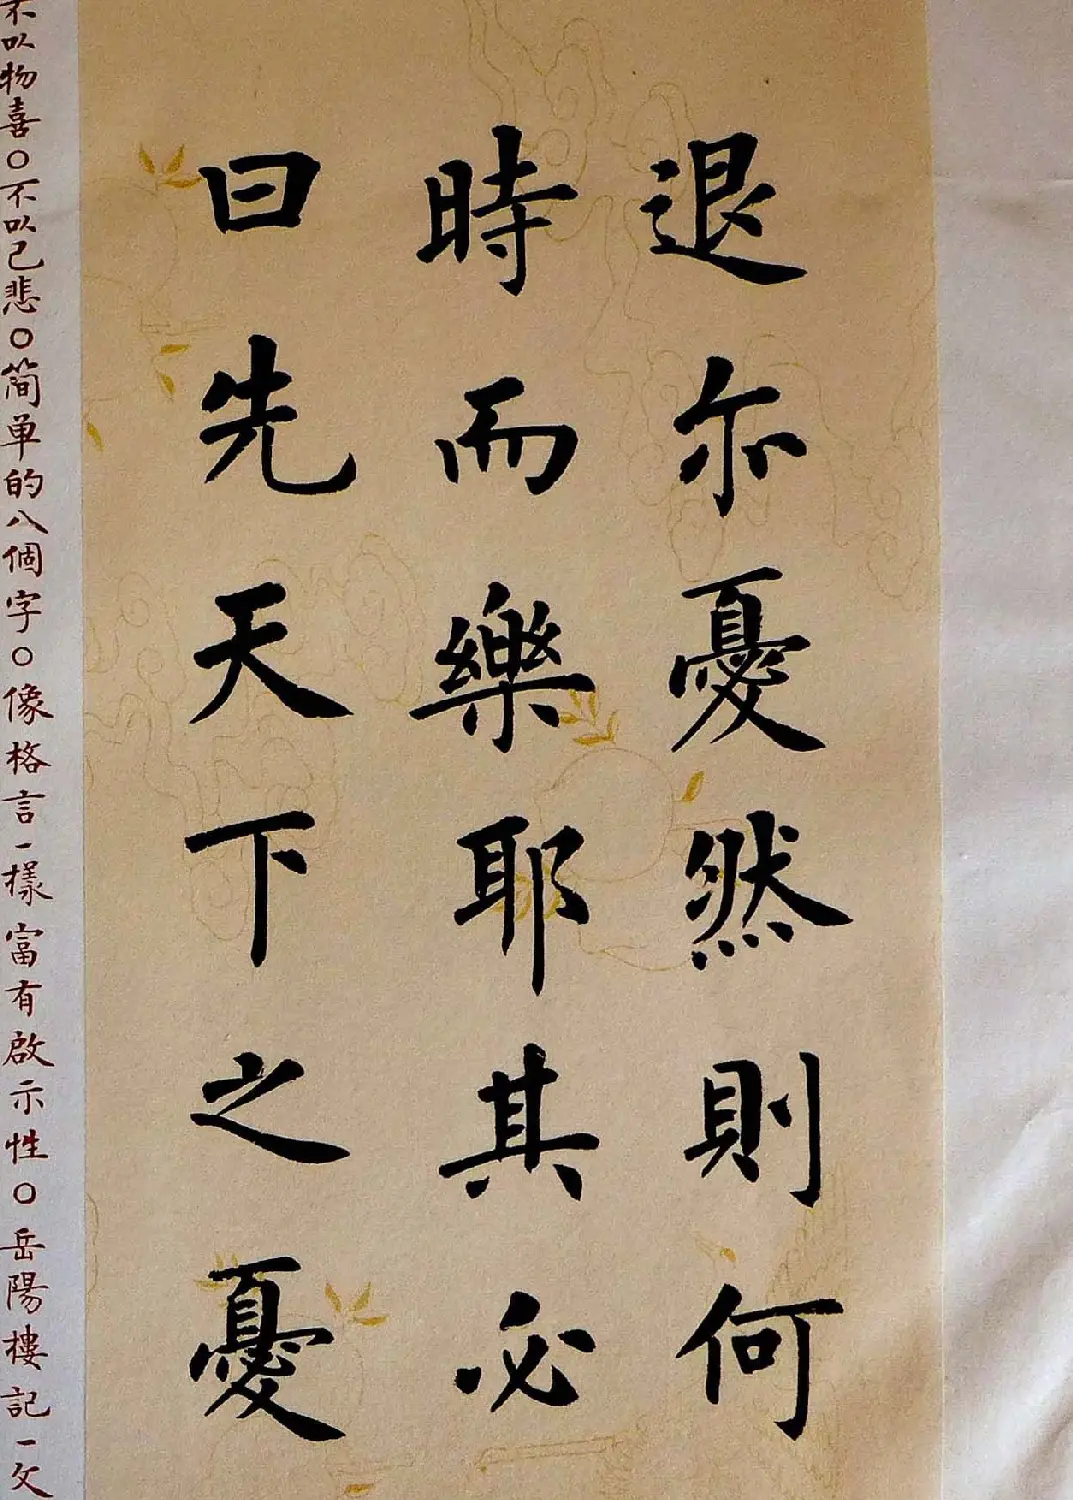 退亦憂然則何
時而樂耶其必
曰先天下之憂
不以物喜○不以己悲○简单的八個字○像格言一樣富有啟示性○岳陽樓記一文